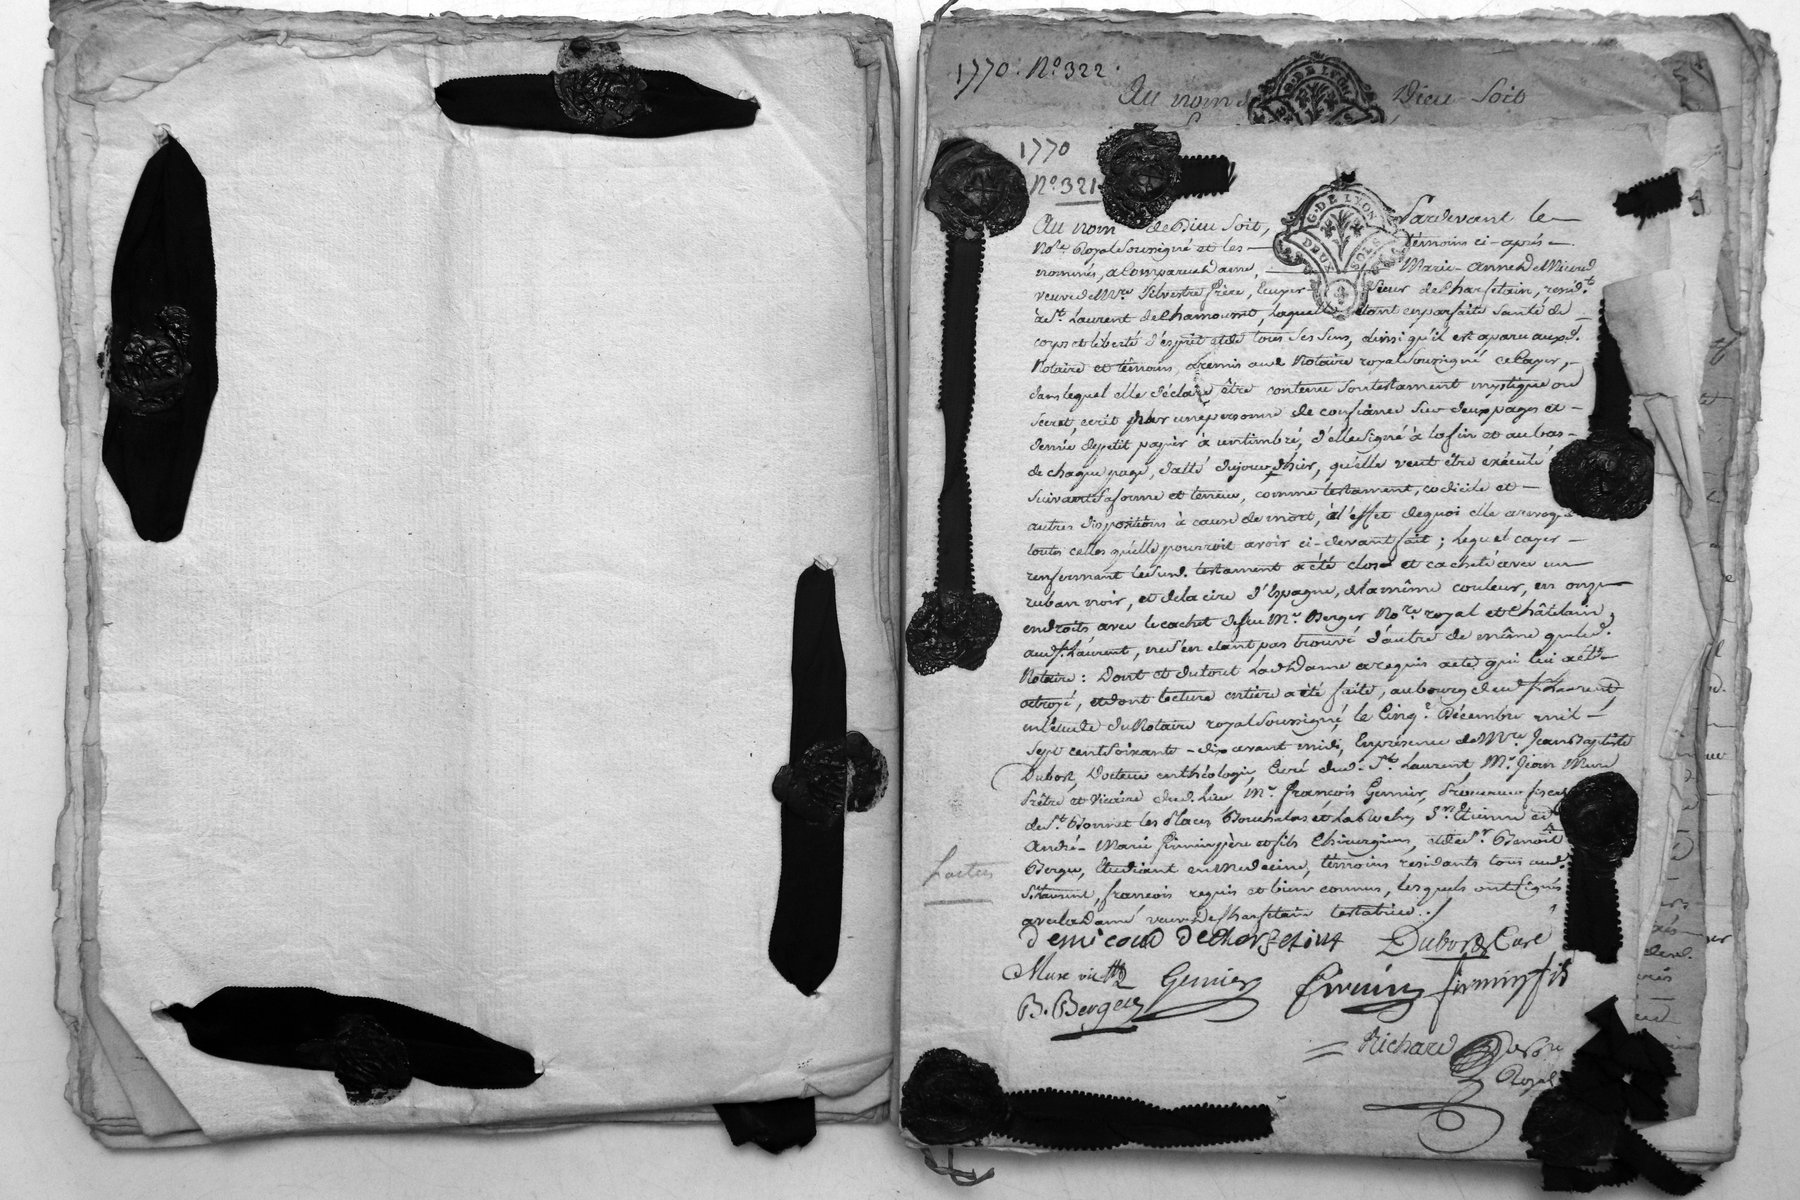 1770. N.º 322.
Au nom de Dieu soit
1770
N.º 321.
G. DE LYON
DEUX SOLS
Au nom de Dieu soit, Pardevant le
No.re Royal soussigné et les témoins ci-après
nommés, a comparu dame, Marie-anne Demicoud
veuve de Mre. Silvestre frère, Ecuyer Sieur de Charsetain, resid.te
à St. Laurent de Chamousset, laquelle étant en parfaite santé de
corps et liberté d'esprit et de tous ses sens, ainsi qu'il est aparu auxd.
Notaire et témoins, a remis aud. Notaire royal soussigné ce Cayer,
dans lequel elle déclare être contenu son testament mystique ou
secret, ecrit par une personne de confiance sur deux pages et
demie de petit papier à un timbré, d'elle signé à la fin et au bas
de chaque page, datté du jour d'hier, qu'elle veut être exécuté
suivant sa forme et teneur, comme testament, codicile et
autres dispositions à cause de mort, à l'effet de quoi elle a revoqué
toutes celles qu'elle pourroit avoir ci-devant fait; lequel cayer
renfermant led. testament a été clos et cacheté avec un
ruban noir, et de la cire d'Espagne, de la même couleur, en onze
endroits avec le cachet de feu Mr. Berger No.re royal et Châtelain
aud. St. Laurent, ne s'en etant pas trouvé d'autre de même qu'aud.
Notaire: Dont et du tout lad. Dame a requis acte qui lui a été
octroyé, et dont lecture entière a été faite, au bourg dud. St. Laurent,
en l'étude du Notaire royal soussigné, le Cinq.e Décembre mil
sept cent soixante-dix avant midi, En présence de Mre. Jean Baptiste
Dubost, Docteur en théologie, Curé dud. St. Laurent Mr. Jean Mure
Prêtre et Vicaire dud. lieu Mr. François Genier, Procureur fiscal
de St. Bonnet les Places, S.r Etienne et
André-Marie Firmin père et fils Chirurgiens, et de Sr. Benoit
Berger, Etudiant en Medecine, témoins residants tous aud.
St. Laurent, françois requis et bien connus, lesquels ont signés
avec lad. Dame veuve De Charsetain testatrice.
Demicoud De Charsetain Dubost Curé
Mure vic.re Genier Firmin firmin fils
B. Berger
Richard No.re
Royal